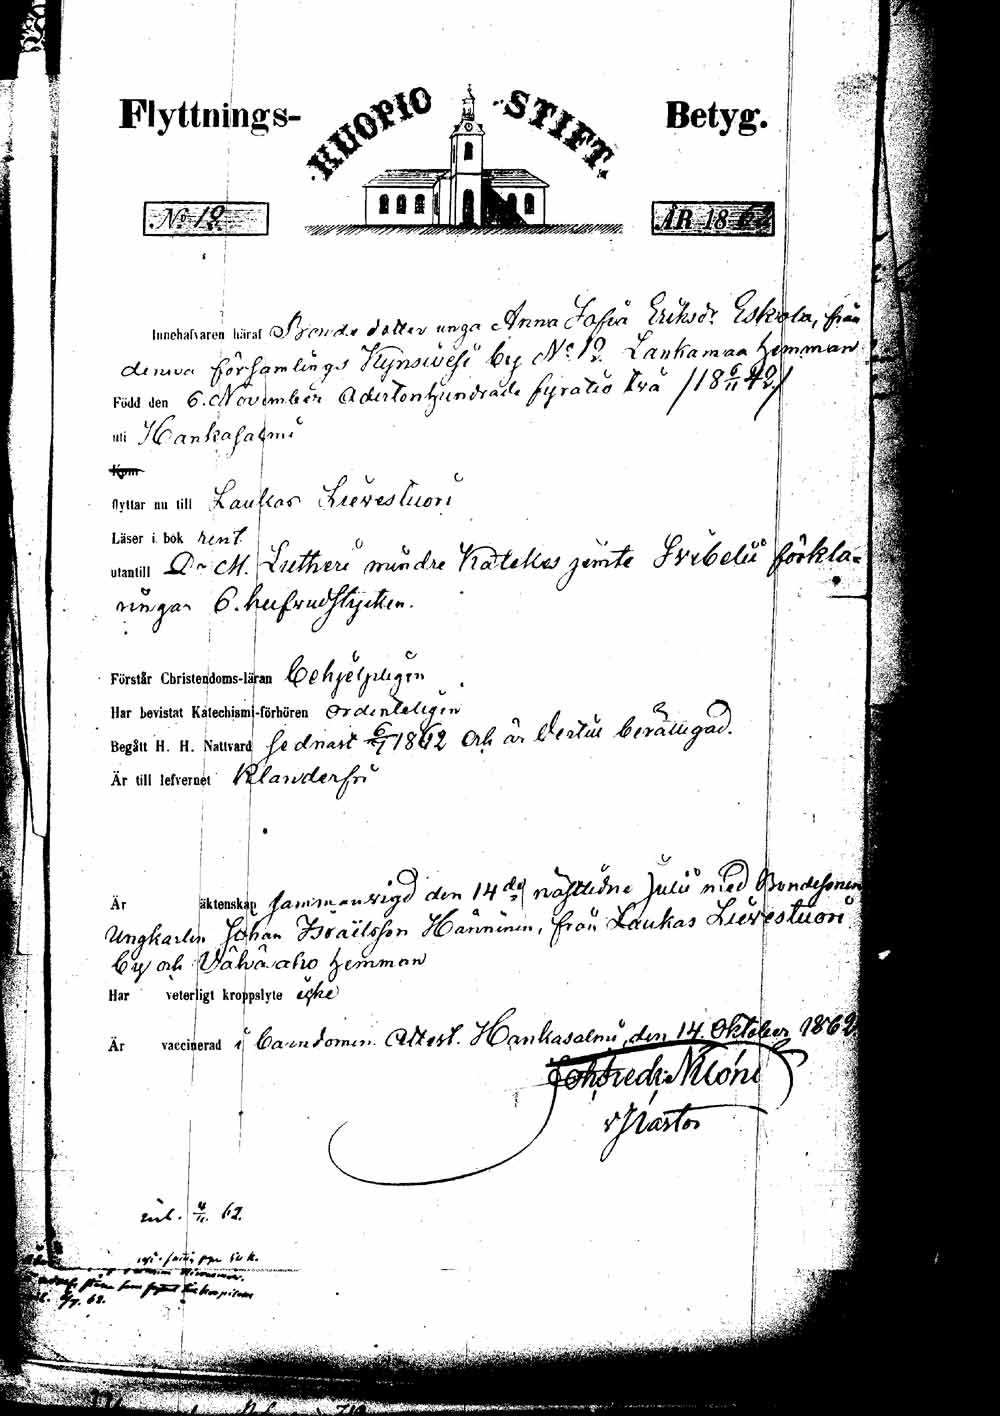 Flyttnings- KUOPIO STIFT Betyg.
No 12. ÅR 1862
Innehafvaren häraf Bonde dotter unga Anna Sofia Eriksdr Eskola, från
denna församlings Kynsivesi by No 12. Lankamaa hemman
Född den 6. November Adertonhundrade fyratio två /18 6/11 42/
uti Hankasalmi
Kom
flyttar nu till Laukas Lievestuori
Läser i bok rent
utantill Dr M. Lutheri mindre Katekes jemte Svebelii förkla-
ringar 6. hufvudstycken.
Förstår Christendoms-läran behjelpligen
Har bevistat Katechismi-förhören ordenteligen
Begått H. H. Nattvard sednast 1862 och är berättigad.
Är till lefvernet Klanderfri
Är äktenskap sammanvigd den 14de nästledne Julii med Bondesonen
Ungkarlen Johan Israelsson Hänninen, från Laukas Lievestuori
by och Vähäaho hemman
Har veterligt kroppslyte icke
Är vaccinerad i barndomen. Attest. Hankasalmi, den 14. Oktober 1862
v Pastor
inl. 4/11. 62.